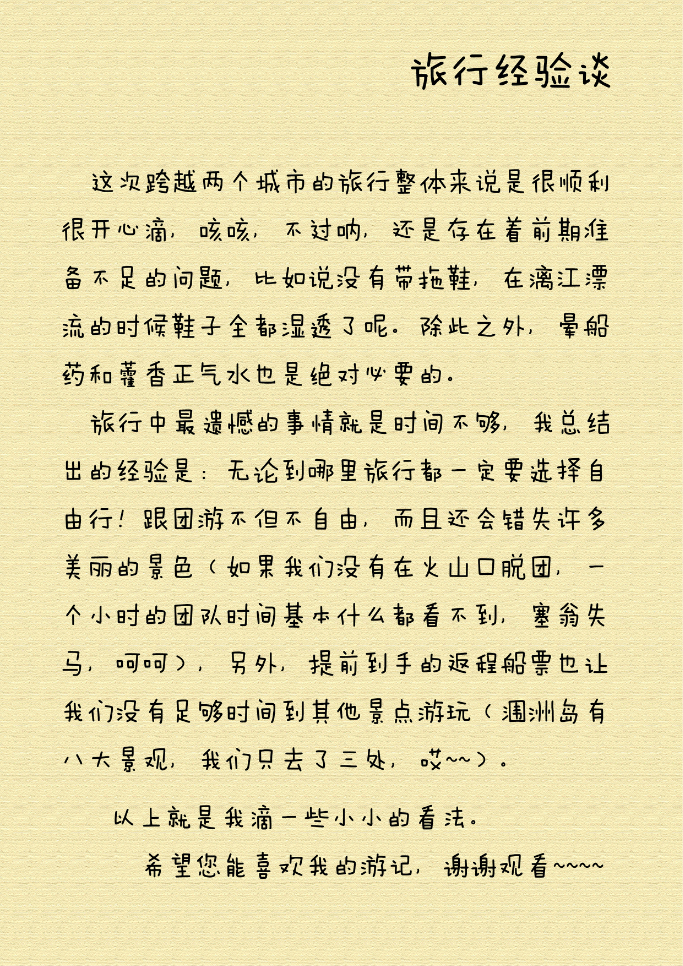 旅行经验谈
这次跨越两个城市的旅行整体来说是很顺利
很开心滴，咳咳，不过呐，还是存在着前期准
备不足的问题，比如说没有带拖鞋，在漓江漂
流的时候鞋子全都湿透了呢。除此之外，晕船
药和藿香正气水也是绝对必要的。
旅行中最遗憾的事情就是时间不够，我总结
出的经验是：无论到哪里旅行都一定要选择自
由行！跟团游不但不自由，而且还会错失许多
美丽的景色（如果我们没有在火山口脱团，一
个小时的团队时间基本什么都看不到，塞翁失
马，呵呵），另外，提前到手的返程船票也让
我们没有足够时间到其他景点游玩（涠洲岛有
八大景观，我们只去了三处，哎~~）。
以上就是我滴一些小小的看法。
希望您能喜欢我的游记，谢谢观看~~~~